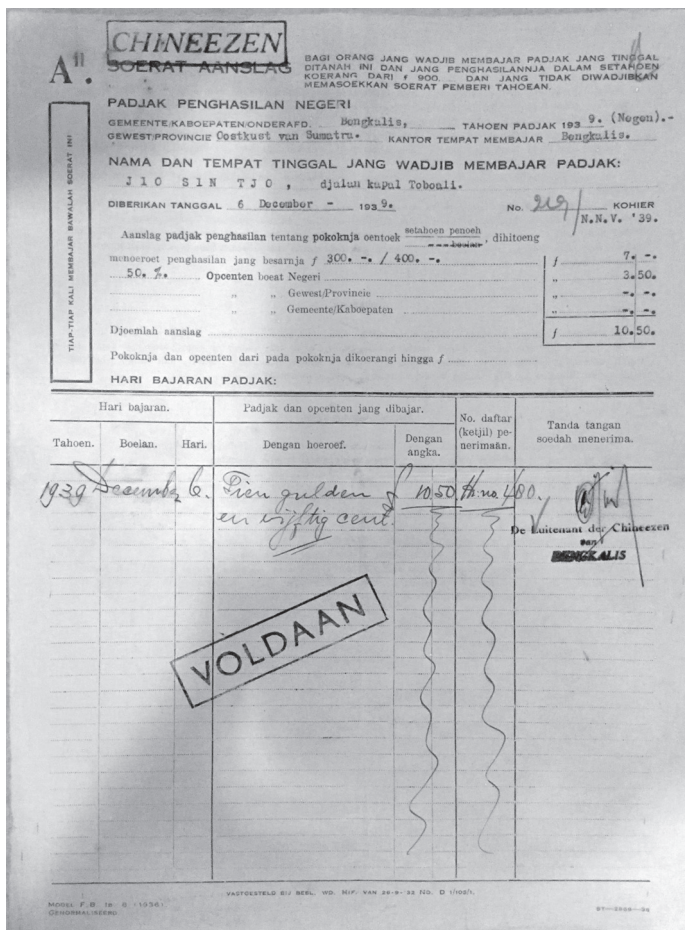 CHINEEZEN
A II.
SOERAT AANSLAG
BAGI ORANG JANG WADJIB MEMBAJAR PADJAK JANG TINGGAL
DITANAH INI DAN JANG PENGHASILANNJA DALAM SETAHOEN
KOERANG DARI f 900.— DAN JANG TIDAK DIWADJIBKAN
MEMASOEKKAN SOERAT PEMBERI TAHOEAN.
TIAP-TIAP KALI MEMBAJAR BAWALAH SOERAT INI
PADJAK PENGHASILAN NEGERI
GEMEENTE/KABOEPATEN/ONDERAFD. Bengkalis, TAHOEN PADJAK 193 9. (Negen).-
GEWEST/PROVINCIE Oostkust van Sumatra. KANTOR TEMPAT MEMBAJAR Bengkalis.
NAMA DAN TEMPAT TINGGAL JANG WADJIB MEMBAJAR PADJAK:
JIO SIN TJO, djalan kapal Toboali.
DIBERIKAN TANGGAL 6 December - 193 9. No. 219 / KOHIER
N.N.V. '39.
Aanslag padjak penghasilan tentang pokoknja oentoek setahoen penoeh / --- boelan, dihitoeng
menoeroet penghasilan jang besarnja f 300. -. / 400. -. f 7. -.
50. %. Opcenten boeat Negeri „ 3.50.
„ „ Gewest/Provincie „ -. -.
„ „ Gemeente/Kaboepaten „ -. -.
Djoemlah aanslag f 10.50.
Pokoknja dan opcenten dari pada pokoknja dikoerangi hingga f
HARI BAJARAN PADJAK:
Hari bajaran. Padjak dan opcenten jang dibajar. No. daftar (ketjil) penerimaän. Tanda tangan soedah menerima.
Tahoen. Boelan. Hari. Dengan hoeroef. Dengan angka.
1939 December 6. Tien gulden f 10.50 Th. no. 480.
en vijftig cent.
De Luitenant der Chineezen
van
BENGKALIS
VOLDAAN
VASTGESTELD BIJ BESL. WD. MIF. VAN 29-9-'33 No. D 1/102/1.
MODEL F.B. 1a. 6 (1936)
GENORMALISEERD.